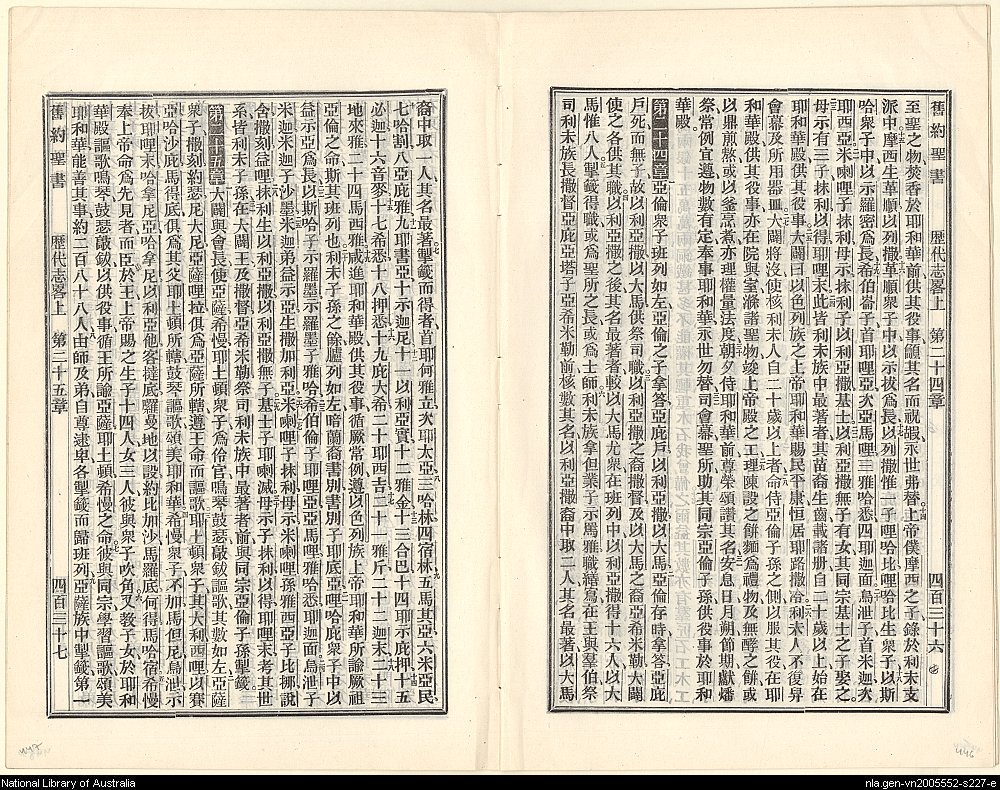 舊約聖書　歷代志畧上　第二十四章　四百三十六
至聖之物焚香於耶和華前供其役事籲其名而祝嘏永世弗替上帝僕摩西之子錄於利未支
派中摩西生革順以列撒革順衆子中以示拔爲長以列撒惟一子哩哈比哩哈比生衆子以斯
哈衆子中以示羅密爲長希伯崙子首耶哩亞次亞馬哩三雅哈悉四耶迦面烏泄子首米迦次
耶西亞米喇哩子抹利母示抹利子以利亞撒基士以利亞撒無子有女其同宗基士之子娶之
母示有三子抹利以得耶哩末此皆利未族中最著者其苗裔生齒載諸册自二十歲以上始在
耶和華殿供其役事大闢曰以色列族之上帝耶和華賜民平康恒居耶路撒冷利未人不復舁
會幕及所用器皿大闢將沒使核利未人自二十歲以上者命侍亞倫子孫之側以服其役在耶
和華殿供其役事亦在院與室滌諸聖物竣上帝殿之工理陳設之餅麵爲禮物及無酵之餅或
以鼎煎熬或以釜烹煮亦理權量法度朝夕侍耶和華前尊榮頌讚其名安息日月朔節期獻燔
祭常例宜遵物數有定奉事耶和華永世勿替司會幕聖所助其同宗亞倫子孫供役事於耶和
華殿
第二十四章　亞倫衆子班列如左亞倫之子拿答亞庇戶以利亞撒以大馬亞倫存時拿答亞庇
戶死而無子故以利亞撒以大馬供祭司職以利亞撒之裔撒督及以大馬之裔亞希米勒大闢
使之各供其職以利亞撒之後其名最著者較以大馬尤衆在班列中以利亞撒得十六人以大
馬惟八人掣籤得職或爲聖所之長或爲士師利未族拿但業子示罵雅職繕寫在王與羣伯祭
司利未族長撒督亞庇亞塔子亞希米勒前核數其名以利亞撒裔中取二人其名最著以大馬
裔中取一人其名最著掣籤而得者首耶何雅立次耶太亞三哈林四宿林五馬其亞六米亞民
七哈割八亞庇雅九耶書亞十示迦尼十一以利亞實十二雅金十三合巴十四耶示庇押十五
必迦十六音麥十七希悉十八押悉十九庇大希二十耶西吉二十一雅斤二十二迦末二十三
地來雅二十四馬西雅咸進耶和華殿供其役事循厥常例遵以色列族上帝耶和華所諭厥祖
亞倫之命斯其班列也利未子孫之餘臚列如左暗蘭裔書別書別子耶底亞哩哈庇衆子中以
益示亞爲長以斯哈子示羅墨示羅墨子雅哈希伯倫子耶哩亞亞馬哩雅哈悉耶迦面烏泄子
米迦米迦子沙墨米迦弟益示亞生撒加利亞米喇哩子抹利母示米喇哩孫雅西亞子比挪說
舍撒刻益哩抹利生以利亞撒以利亞撒無子基士子耶喇滅母示子抹利以得耶哩末考其世
系皆利未子孫在大闢王及撒督亞希米勒祭司利未族中最著者前與同宗亞倫子孫掣籤
第二十五章　大闢與會長使亞薩希慢耶土頓衆子爲伶官鳴琴鼓瑟敲鈸謳歌其數如左亞薩
衆子撒刻約瑟尼大尼亞薩哩拉俱爲亞薩所轄遵王命而謳歌耶土頓衆子其大利西哩以賽
亞哈沙庇馬得底俱爲其父耶土頓所轄鼓琴謳歌頌美耶和華希慢衆子不加馬但尼烏泄示
拔耶哩末哈拿尼亞哈拿尼以利亞他客撻底羅曼地以設約比加沙馬羅底何得馬哈宿希慢
奉上帝命爲先見者而臣於王上帝賜之生子十四人女三人彼與衆子吹角又敎子女於耶和
華殿謳歌鳴琴鼓瑟敲鈸以供役事循王所諭亞薩耶土頓希慢之命彼與同宗學習謳歌頌美
耶和華能善其事約二百八十八人由師及弟自尊逮卑各掣籤而歸班列亞薩族中掣籤第一
舊約聖書　歷代志畧上　第二十五章　四百三十七
National Library of Australia
nla.gen-vn2005552-s227-e